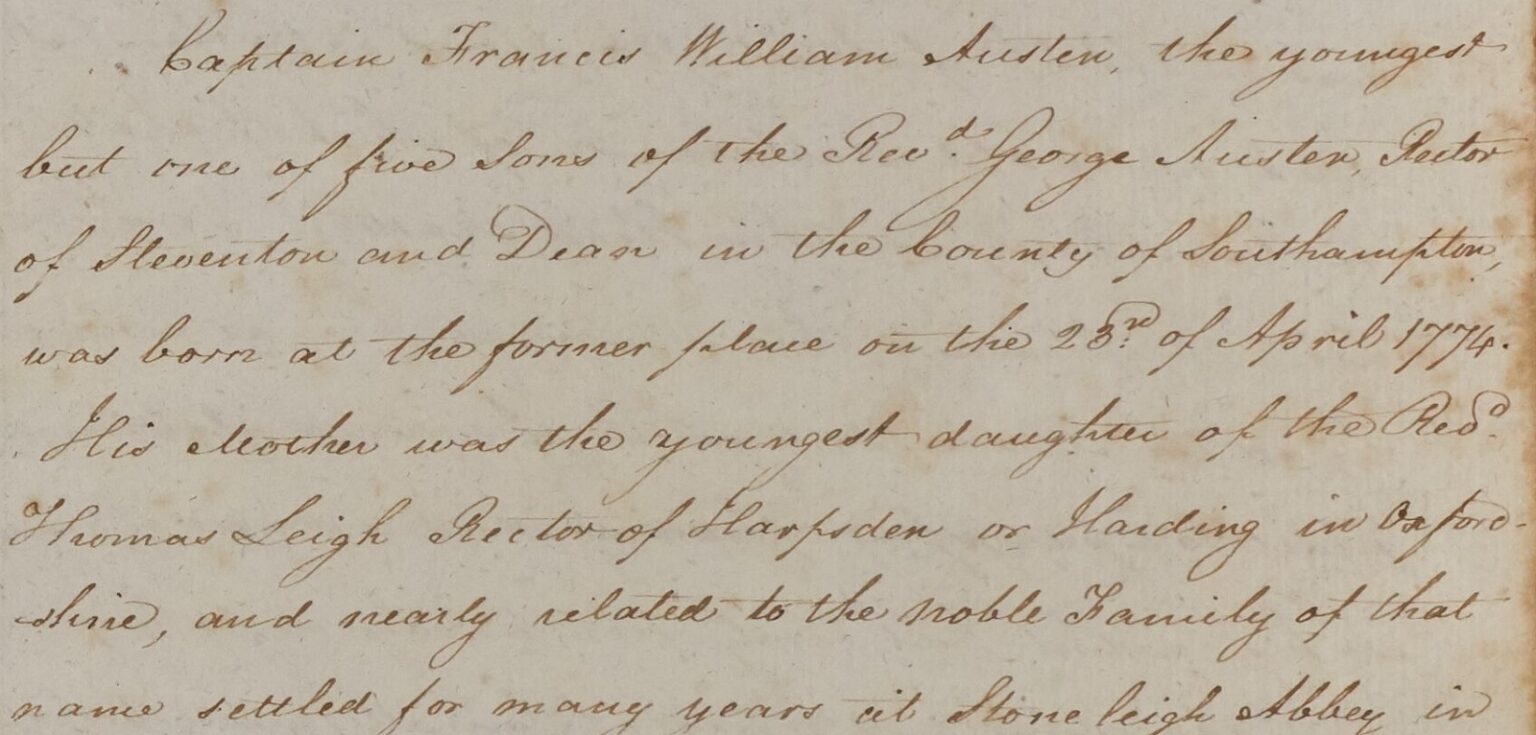 Captain Francis William Austen, the youngest
but one of five Sons of the Revd. George Austen, Rector
of Steventon and Dean in the County of Southampton,
was born at the former place on the 23rd. of April 1774.
His Mother was the youngest daughter of the Revd.
Thomas Leigh Rector of Harpsden or Harding in Oxford-
-shire, and nearly related to the noble Family of that
name settled for many years at Stoneleigh Abbey in